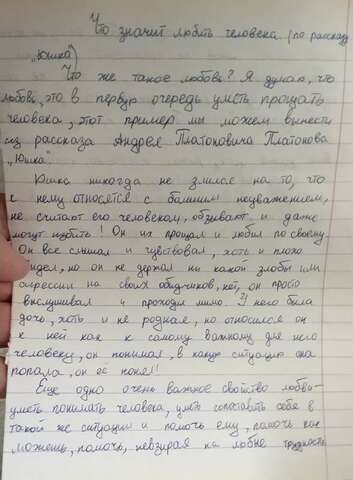 Что значит любить человека (по рассказу
„Юшка")
Что же такое любовь? Я думаю, что
любовь, это в первую очередь уметь прощать
человека, этот пример мы можем вынести
из рассказа Андрея Платоновича Платонова
„Юшка".
Юшка никогда не злился на то, что
к нему относятся с большим неуважением,
не считают его человеком, обзывают и даже
могут избить! Он их прощал и любил по своему.
Он все слышал и чувствовал, хоть и плохо
видел, но он не держал ни какой злобы или
агрессии на своих обидчиков, нет, он просто
выслушивал и проходил мимо. У него была
дочь, хоть и не родная, но относился он
к ней как к самому важному для него
человеку, он понимал, в какую ситуацию она
попала, он ее понял!
Еще одно очень важное свойство любви-
уметь понимать человека, уметь сопоставить себя в
такой же ситуации и помочь ему, помочь как
можешь, помочь, невзирая на любые трудности